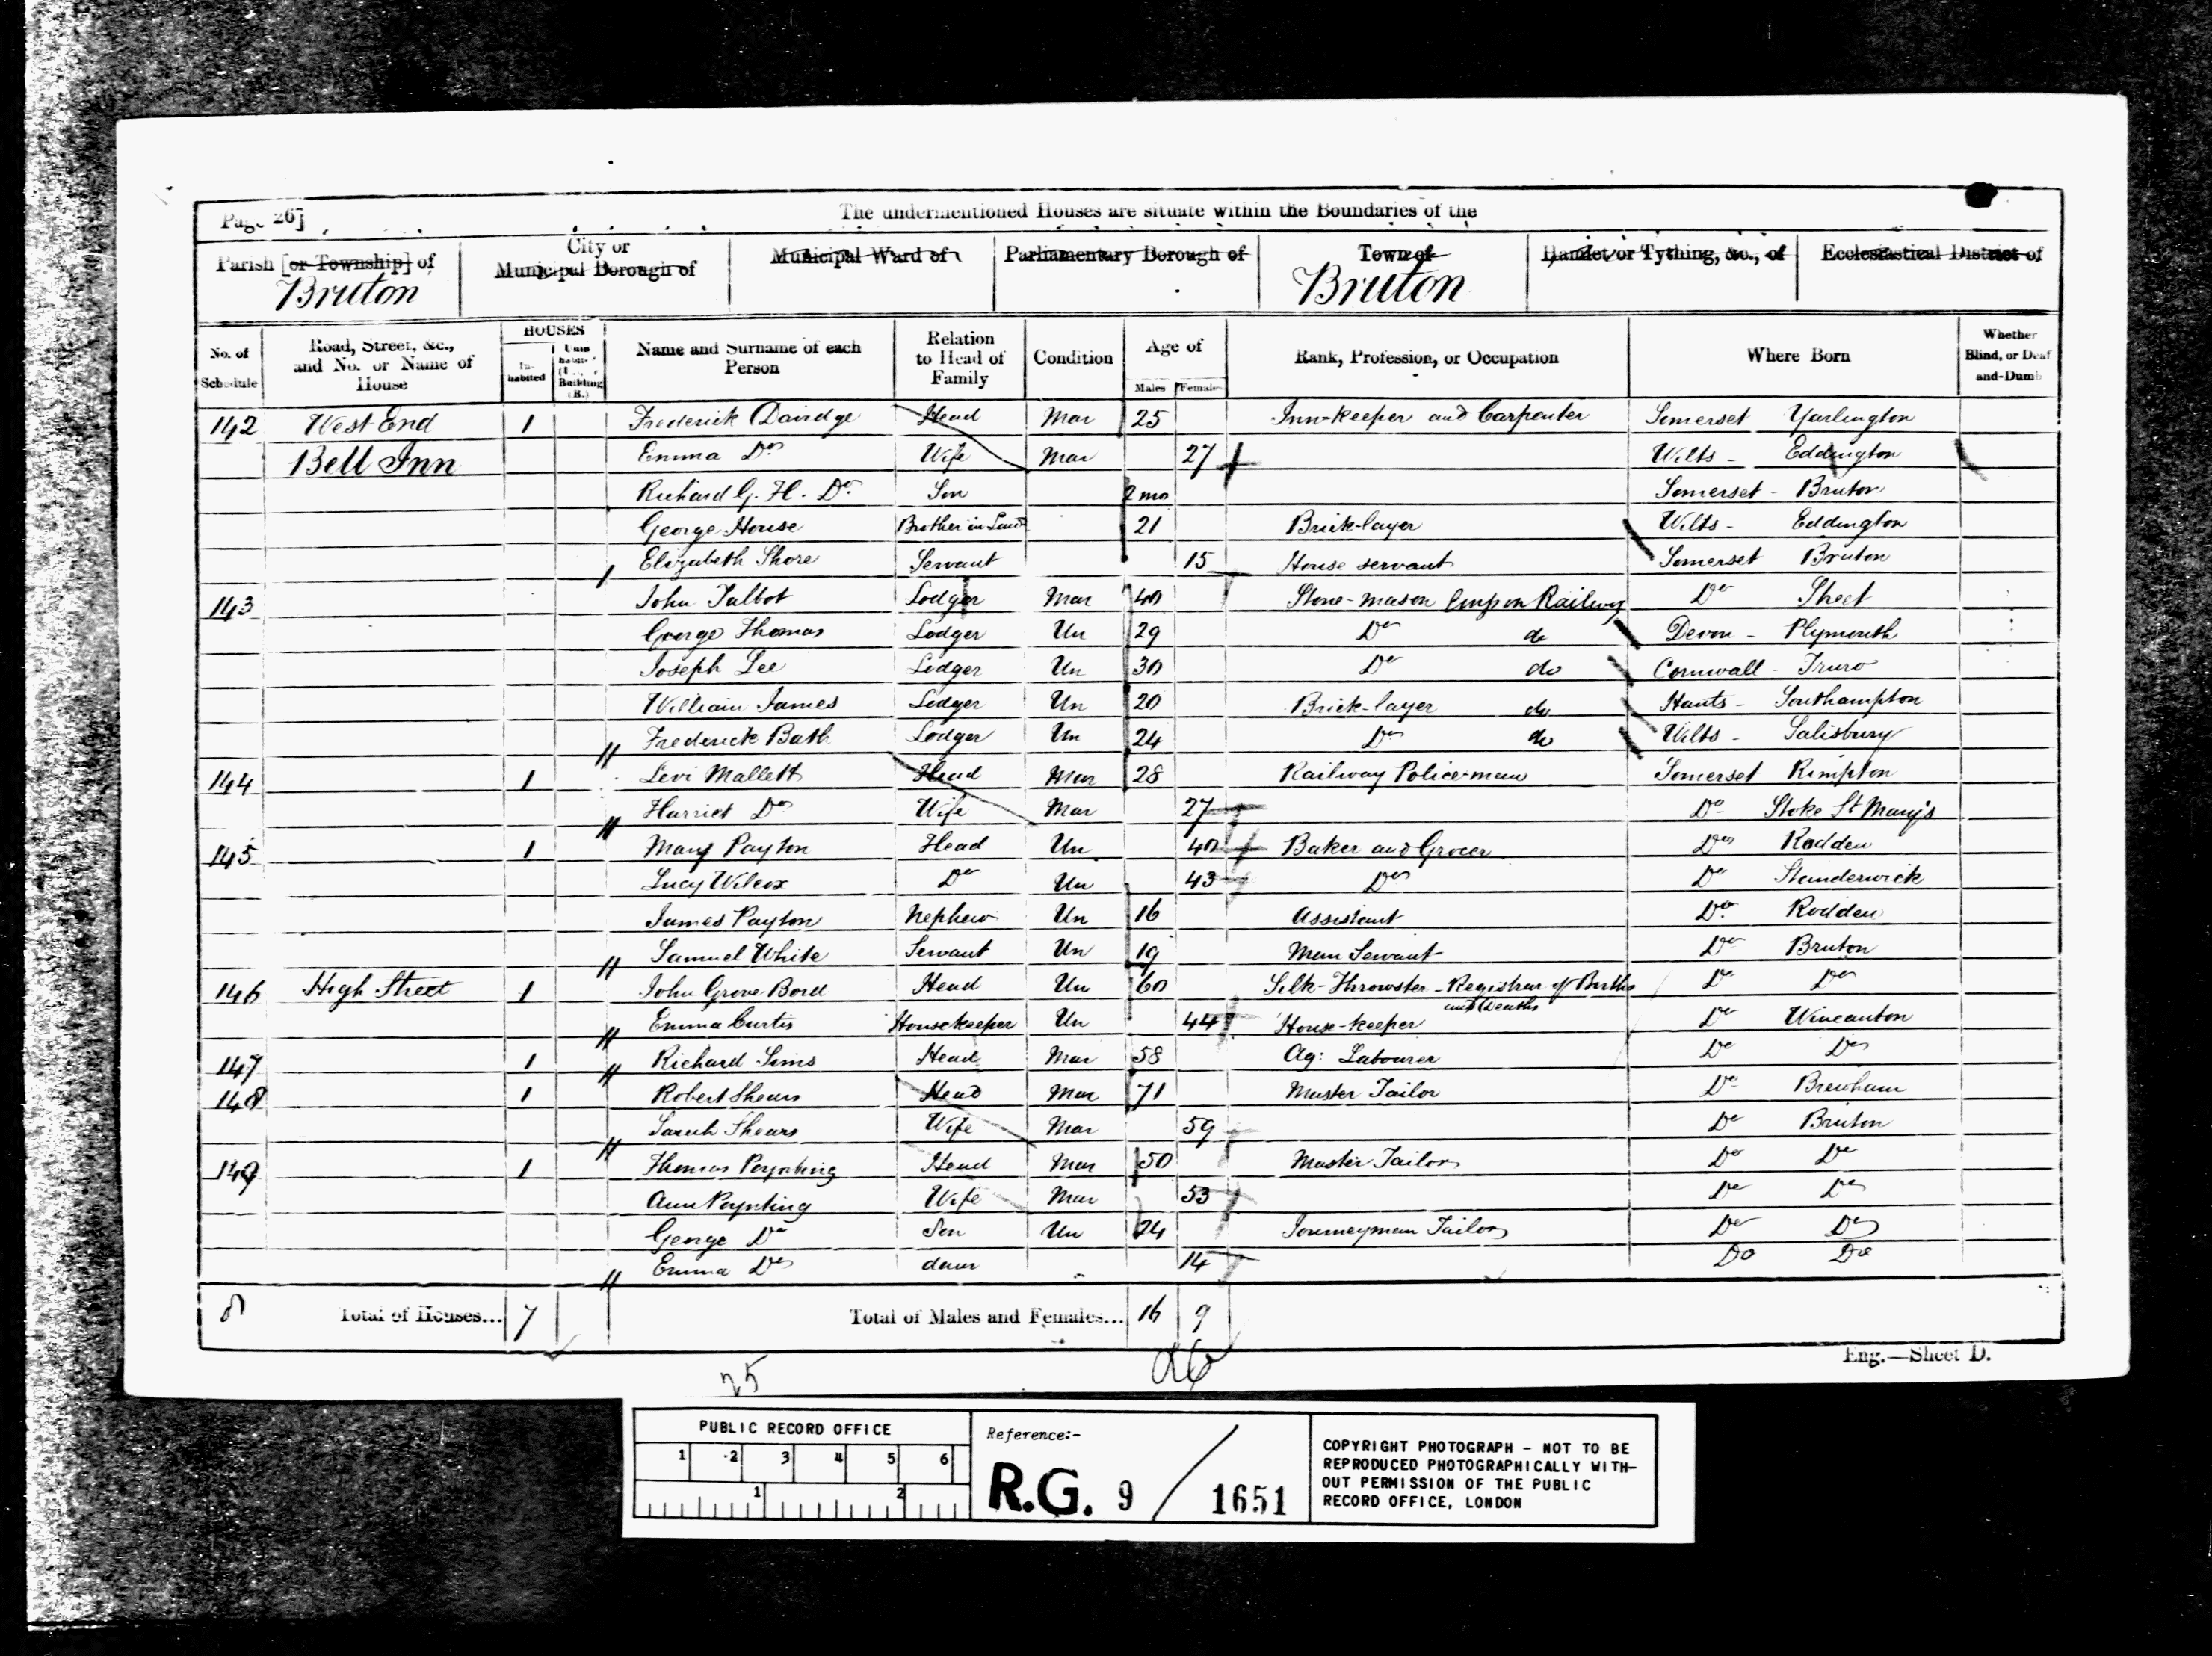 Page 26]
The undermentioned Houses are situate within the Boundaries of the
Parish [or Township] of
Bruton
City or
Municipal Borough of
Municipal Ward of
Parliamentary Borough of
Town of
Bruton
Hamlet or Tything, &c., of
Ecclesiastical District of
No. of Schedule
Road, Street, &c., and No. or Name of House
HOUSES
Inhabited
Building (B.)
Name and Surname of each Person
Relation to Head of Family
Condition
Age of
Males
Females
Rank, Profession, or Occupation
Where Born
Whether Blind, or Deaf and-Dumb
142 West End 1 Frederick Davidge Head Mar 25 Inn-keeper and Carpenter Somerset Yarlington
Bell Inn Emma Do Wife Mar 27 Wilts - Eddington
Richard G. H. Do Son 2 mo Somerset - Bruton
George House Brother in Law 21 Brick-layer Wilts - Eddington
Elizabeth Shore Servant 15 House servant Somerset Bruton
143 John Talbot Lodger Mar 40 Stone-mason Emp on Railway Do Street
George Thomas Lodger Un 29 Do do Devon - Plymouth
Joseph Lee Lodger Un 30 Do do Cornwall - Truro
William James Lodger Un 20 Brick-layer do Hants - Southampton
Frederick Bath Lodger Un 24 Do do Wilts - Salisbury
144 1 Levi Mallett Head Mar 28 Railway Police-man Somerset Rimpton
Harriet Do Wife Mar 27 Do Stoke St Mary's
145 1 Mary Payton Head Un 40 Baker and Grocer Do Rodden
Lucy Wilcox Do Un 43 Do Do Standerwick
James Payton Nephew Un 16 Assistant Do Rodden
Samuel White Servant Un 19 Man Servant Do Bruton
146 High Street 1 John Grove Bord Head Un 60 Silk-Throwster - Registrar of Births and Deaths Do Do
Emma Curtis Housekeeper Un 44 House-keeper Do Wincanton
147 1 Richard Sims Head Mar 58 Ag: Labourer Do Do
148 1 Robert Shears Head Mar 71 Master Tailor Do Brewham
Sarah Shears Wife Mar 59 Do Bruton
149 1 Thomas Poynting Head Mar 50 Master Tailor Do Do
Ann Poynting Wife Mar 53 Do Do
George Do Son Un 24 Journeyman Tailor Do Do
Emma Do daur 14 Do Do
8 Total of Houses... 7 Total of Males and Females... 16 9
25
Eng.—Sheet D.
PUBLIC RECORD OFFICE
1 2 3 4 5 6
1 2
Reference:-
R.G. 9 / 1651
COPYRIGHT PHOTOGRAPH - NOT TO BE
REPRODUCED PHOTOGRAPHICALLY WITH-
OUT PERMISSION OF THE PUBLIC
RECORD OFFICE, LONDON